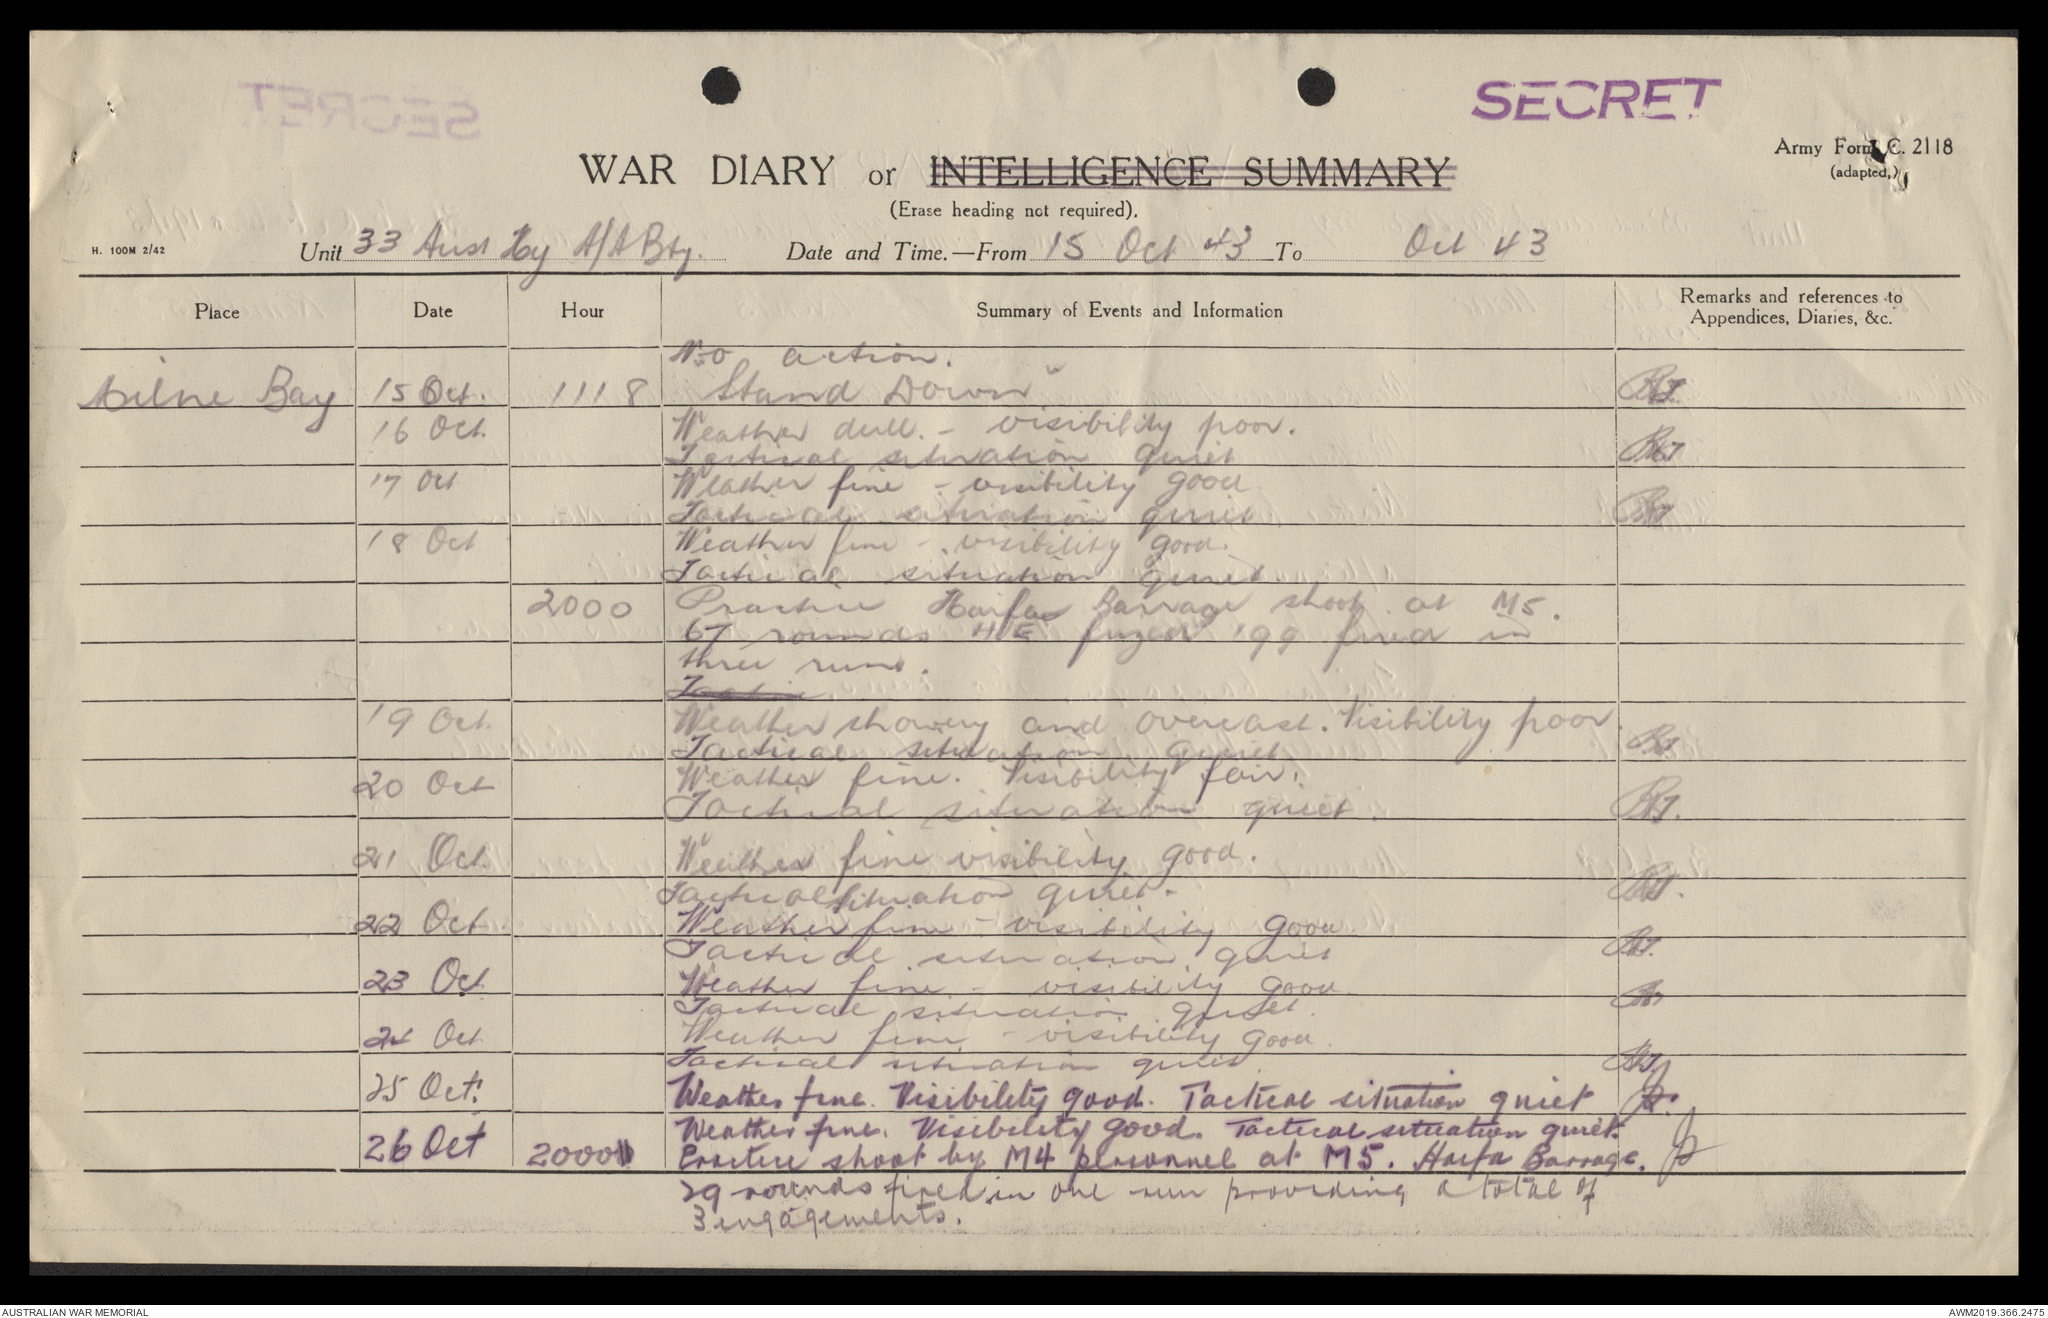 SECRET
Army Form C. 2118
(adapted.)
WAR DIARY or INTELLIGENCE SUMMARY
(Erase heading not required).
H. 100M 2/42
Unit 33 Aust Hy A/A Bty. Date and Time.—From 15 Oct 43 To Oct 43
Place Date Hour Summary of Events and Information Remarks and references to Appendices, Diaries, &c.
No action.
Milne Bay 15 Oct. 1118 Stand Down"
16 Oct. Weather dull. - visibility poor.
Tactical situation quiet
17 Oct Weather fine - visibility good
Tactical situation quiet
18 Oct Weather fine - visibility good.
Tactical situation quiet
2000 Practice Haifas Barrage shoot at M5.
67 rounds HE fuzed 199 fired in
three runs.
19 Oct. Weather showery and overcast. Visibility poor.
Tactical situation quiet
20 Oct Weather fine. Visibility fair.
Tactical situation quiet.
21 Oct. Weather fine visibility good.
Tactical situation quiet.
22 Oct. Weather fine - visibility good
Tactical situation quiet
23 Oct. Weather fine - visibility good
Tactical situation quiet.
24 Oct Weather fine - visibility good.
Tactical situation quiet
25 Oct. Weather fine. Visibility good. Tactical situation quiet
Weather fine. Visibility good. Tactical situation quiet.
26 Oct 2000 Practice shoot by M4 personnel at M5. Haifa Barrage.
29 rounds fired in one run providing a total of
3 engagements.
AUSTRALIAN WAR MEMORIAL
AWM2019.366.2475